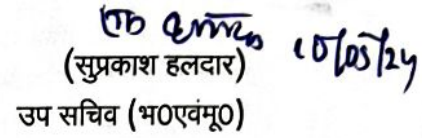 10/05/24
(सुप्रकाश हलदार)
उप सचिव (भ0एवंमू0)